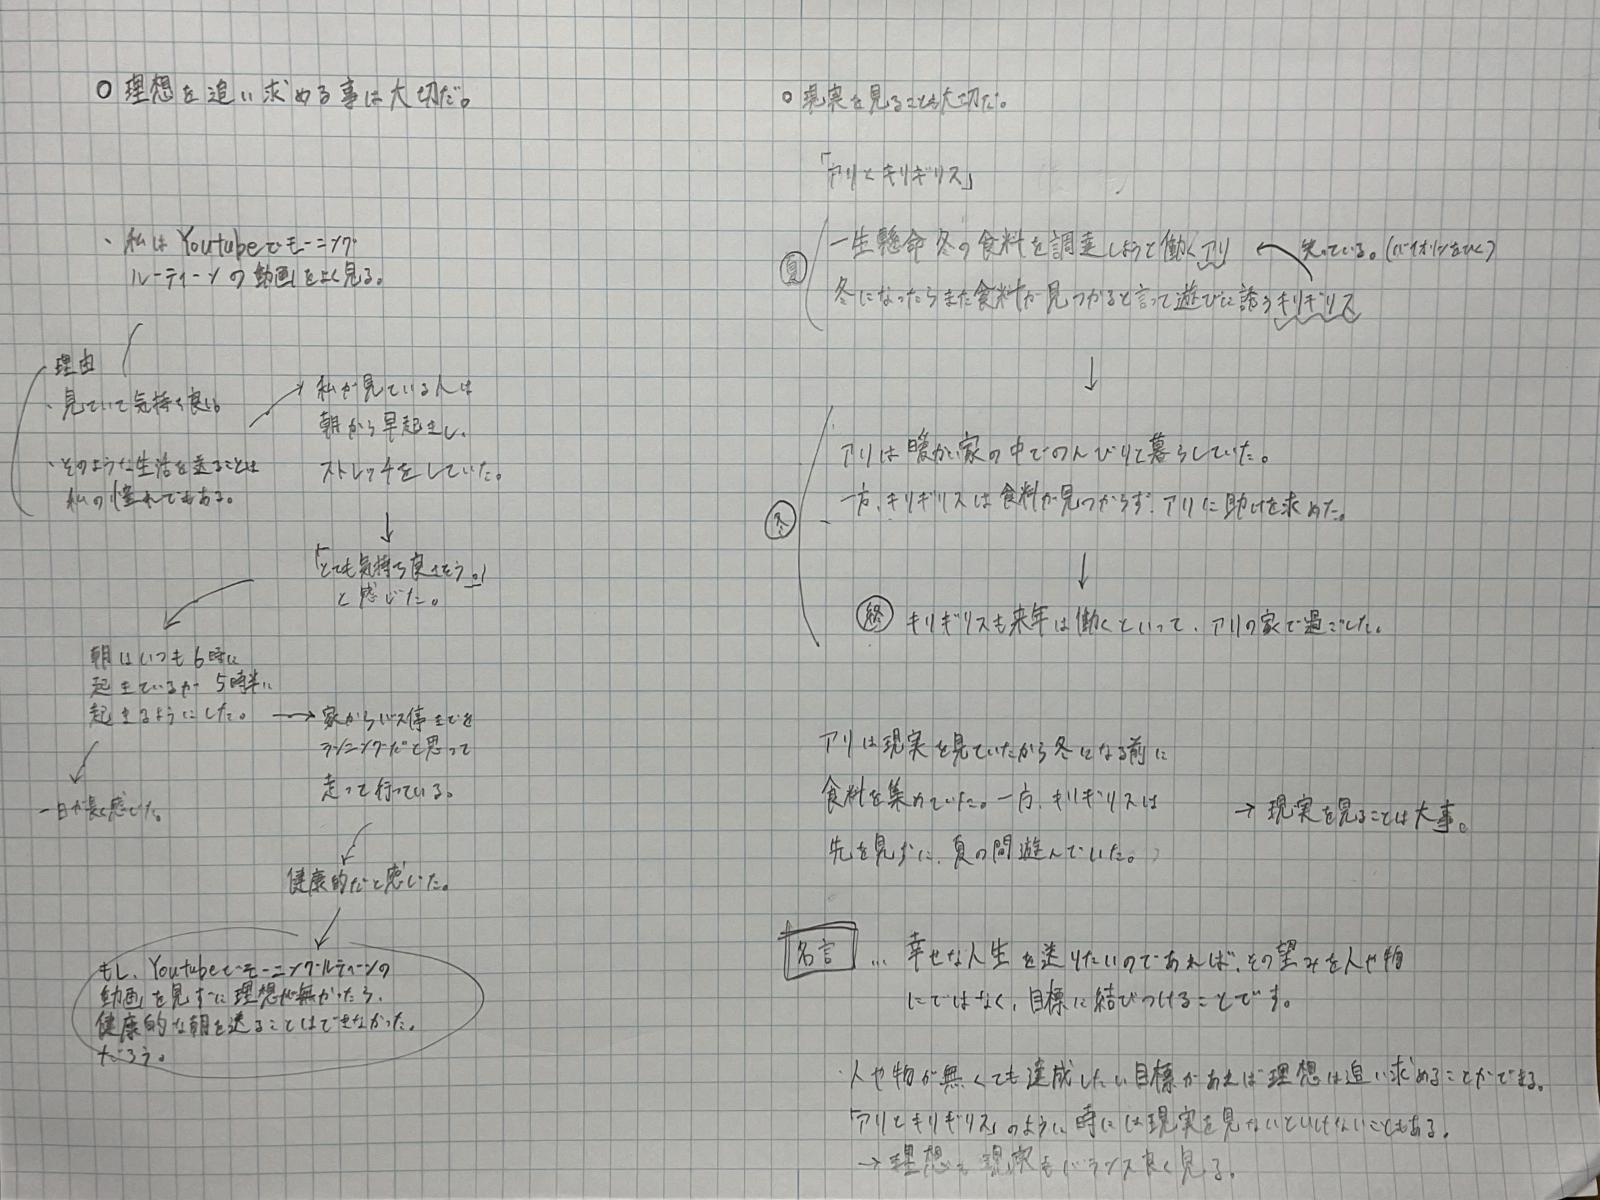 ○ 理想を追い求める事は大切だ。
・私はYoutubeでモーニング
ルーティーンの動画をよく見る。
理由
・見ていて気持ち良い。
・そのような生活を送ることは
私の憧れでもある。
私が見ている人は
朝から早起きし、
ストレッチをしていた。
「とても気持ち良さそう。」
と感じた。
朝はいつも6時に
起きているが 5時半に
起きるようにした。
一日が長く感じた。
家からバス停までを
ランニングだと思って
走って行っている。
健康的だと感じた。
もし、Youtubeでモーニングルーティーンの
動画を見ずに理想が無かったら、
健康的な朝を送ることはできなかった。
だろう。
○ 現実を見ることも大切だ。
「アリとキリギリス」
夏
一生懸命冬の食料を調達しようと働くアリ
笑っている。(バイオリンをひく)
冬になったらまた食料が見つかると言って遊びに誘うキリギリス
冬
アリは暖かい家の中でのんびりと暮らしていた。
一方、キリギリスは食料が見つからず、アリに助けを求めた。
終 キリギリスも来年は働くといって、アリの家で過ごした。
アリは現実を見ていたから冬になる前に
食料を集めていた。一方、キリギリスは
先を見ずに、夏の間遊んでいた。
→ 現実を見ることは大事。
名言 … 幸せな人生を送りたいのであれば、その望みを人や物
にではなく、目標に結びつけることです。
・人や物が無くても達成したい目標があれば理想は追い求めることができる。
「アリとキリギリス」のように時には現実を見ないといけないこともある。
→ 理想も現実もバランス良く見る。